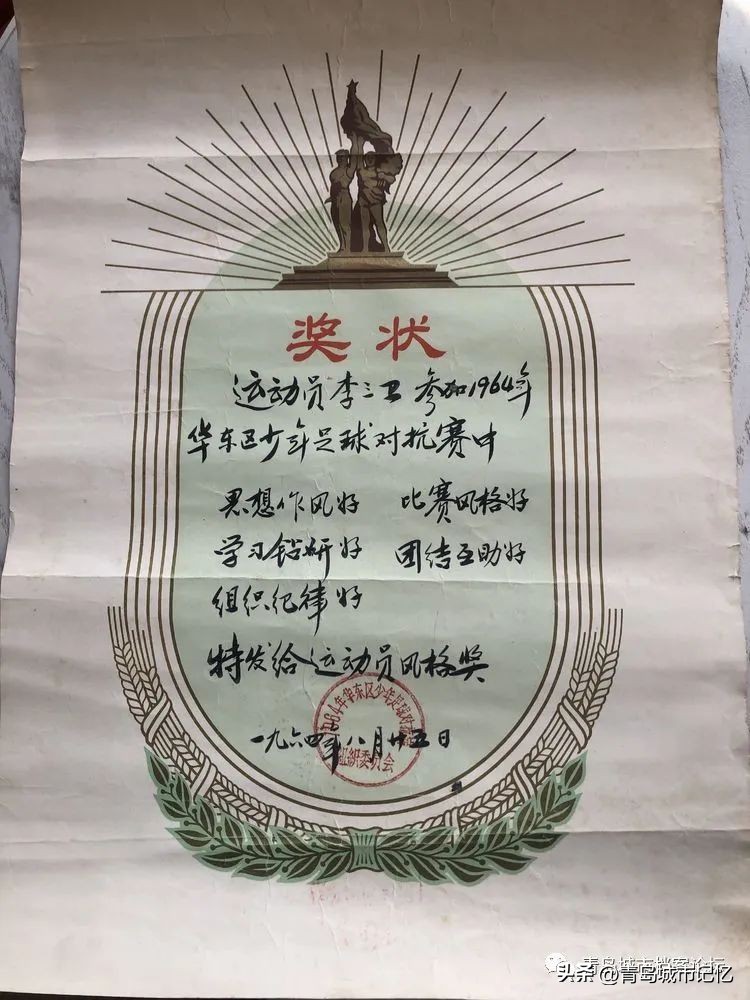 奖状
运动员李三卫 参加1964年
华东区少年足球对抗赛中
思想作风好 比赛风格好
学习钻研好 团结互助好
组织纪律好
特发给运动员风格奖
一九六四年八月廿五日
1964年华东区少年足球对抗赛
组织委员会
青岛城市档案论坛
头条@青岛城市记忆